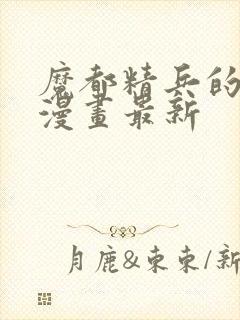 魔都精兵的
漫畫最新
月鹿&東東/新